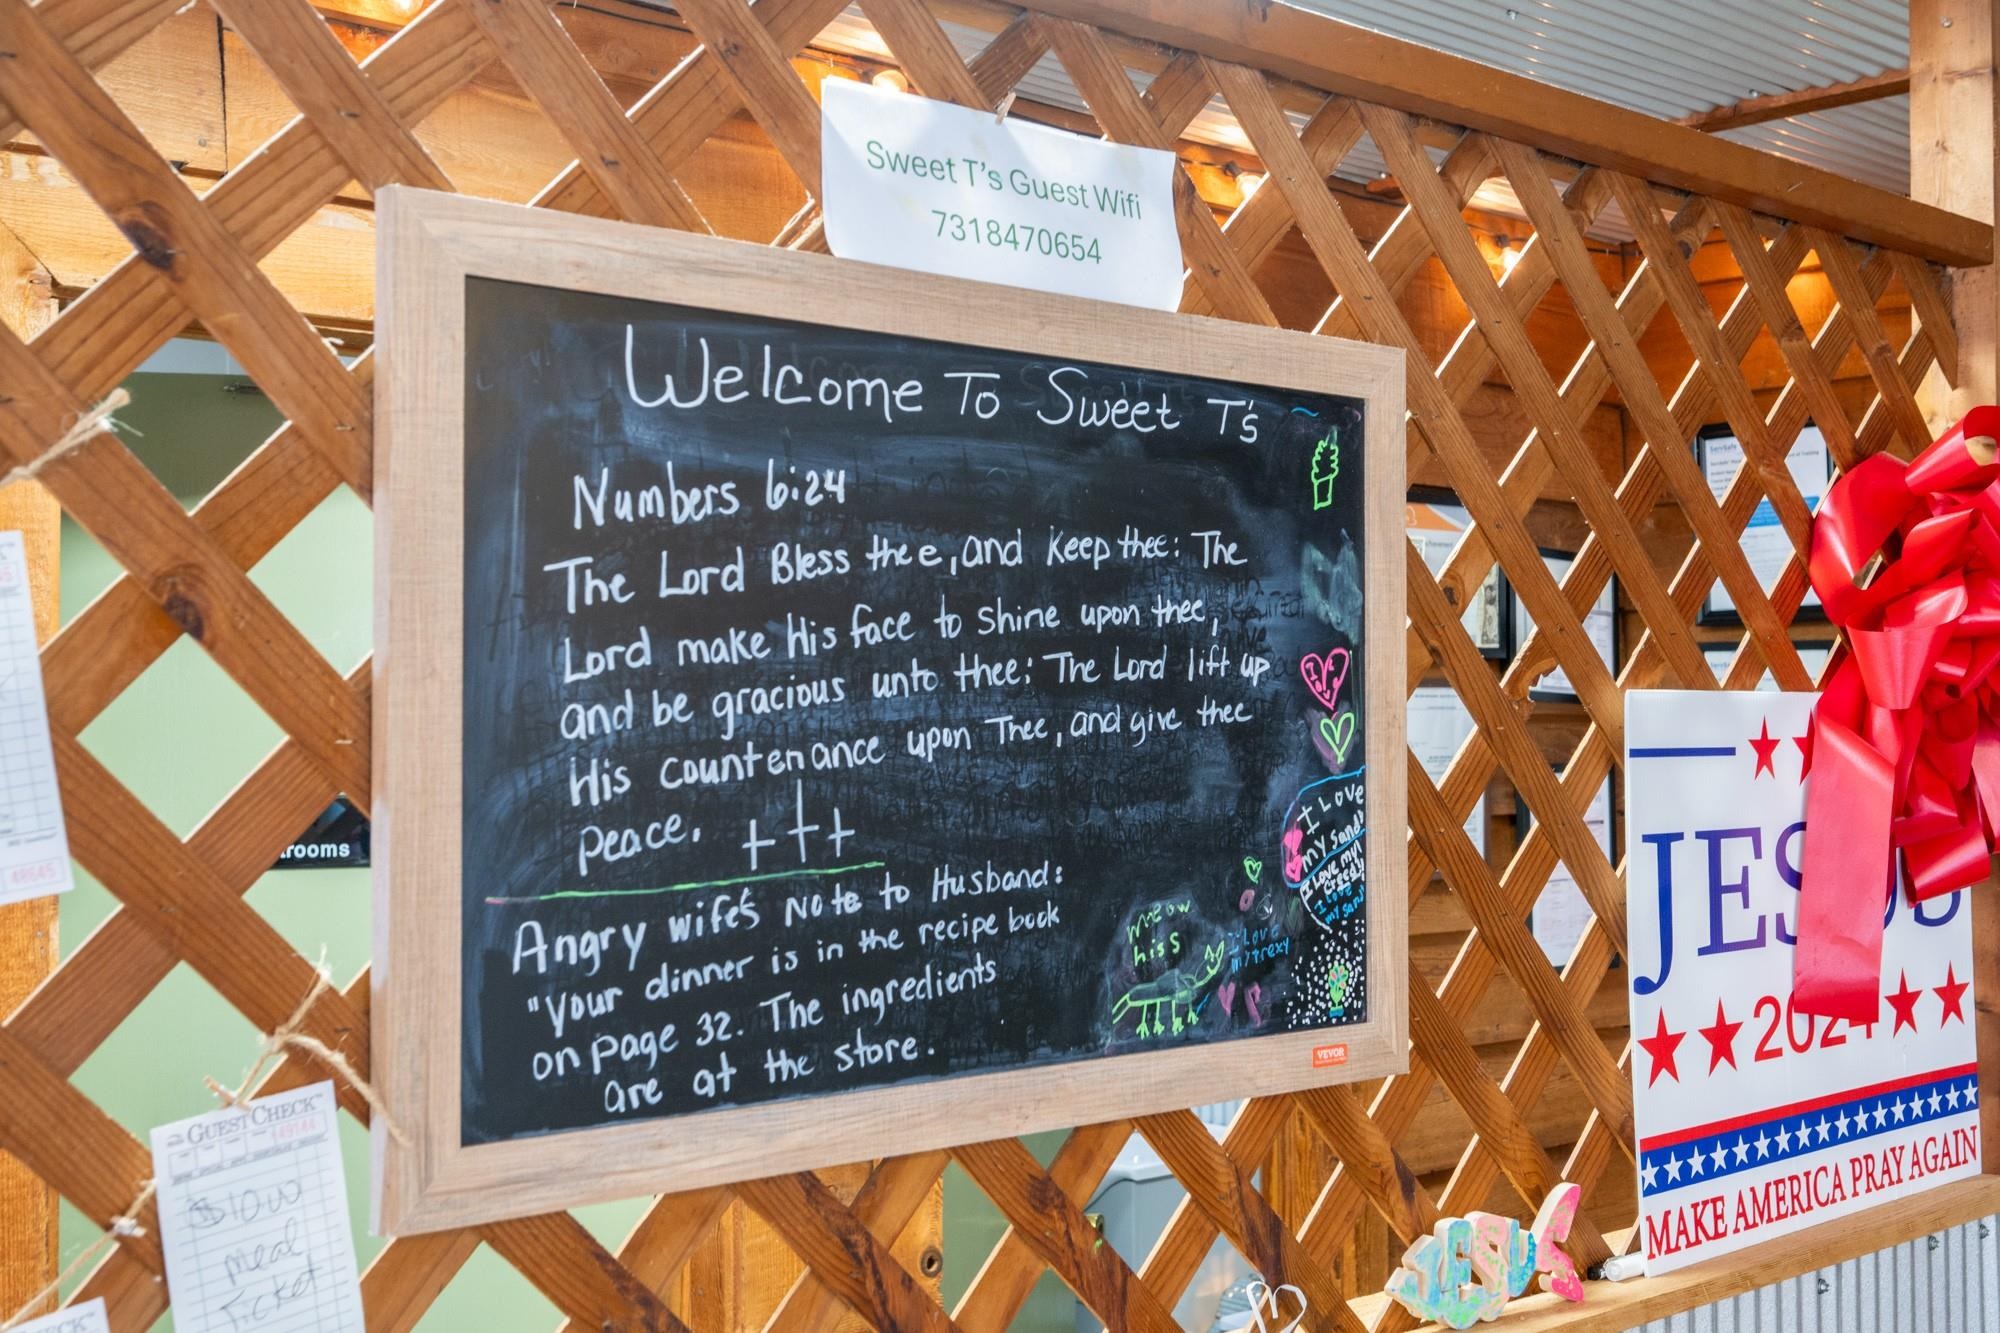 Sweet T's Guest Wifi
7318470654
Welcome To Sweet T's
Numbers 6:24
The Lord Bless thee, and keep thee: The
Lord make His face to shine upon thee,
and be gracious unto thee: The Lord lift up
His countenance upon Thee, and give thee
peace.
Angry wife's Note to Husband:
"Your dinner is in the recipe book
on page 32. The ingredients
are at the store.
I LOVE
my
I Love my
I Love
my
meow
hiss
I Love
my trexy
VEVOR
rooms
48645
GUEST CHECK™
$10.00
meal
Ticket
JESUS
2024
MAKE AMERICA PRAY AGAIN
JESUS
ServSafe
of Training